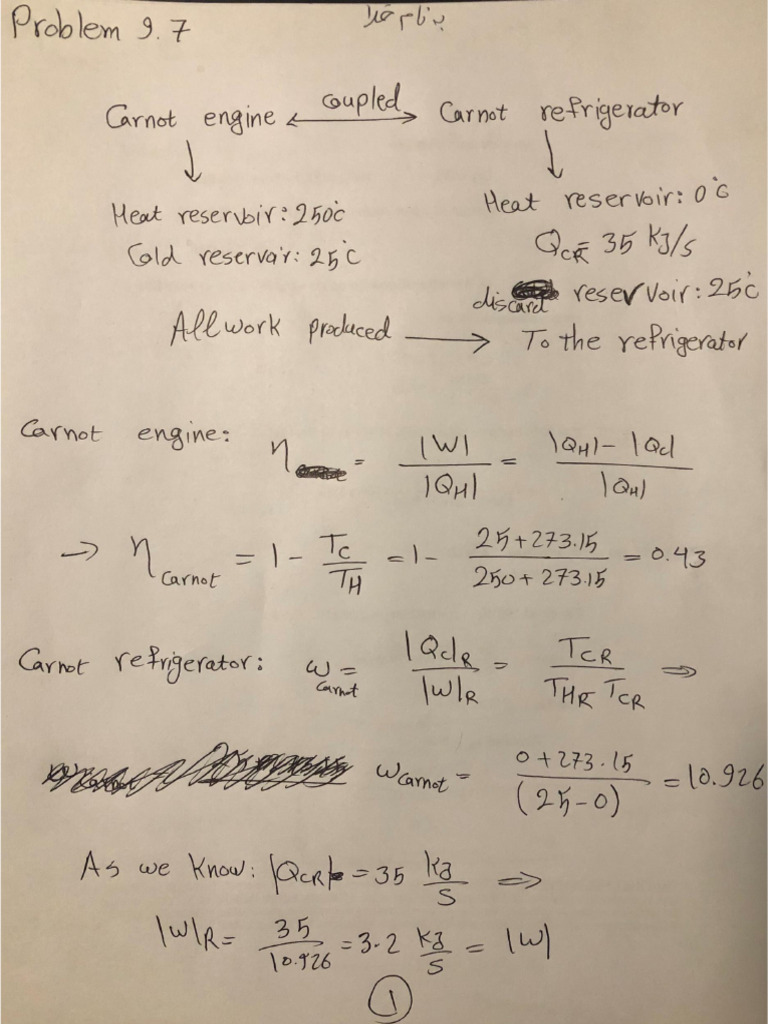 Problem 9.7
بنام خدا
Carnot engine ⟷ coupled Carnot refrigerator
↓ ↓
Heat reservoir: 250°C
Cold reservoir: 25°C
Heat reservoir: 0°C
Q_CR = 35 kJ/s
discard reservoir: 25°C
All work produced ⟶ To the refrigerator
Carnot engine: η = |W| / |Q_H| = (|Q_H| − |Q_C|) / |Q_H|
→ η_Carnot = 1 − T_C / T_H = 1 − (25+273.15) / (250+273.15) = 0.43
Carnot refrigerator: ω_Carnot = |Q_C|_R / |W|_R = T_CR / (T_HR − T_CR) ⇒
ω_Carnot = (0+273.15) / (25−0) = 10.926
As we know: |Q_CR| = 35 kJ/s ⇒
|W|_R = 35 / 10.926 = 3.2 kJ/s = |W|
1